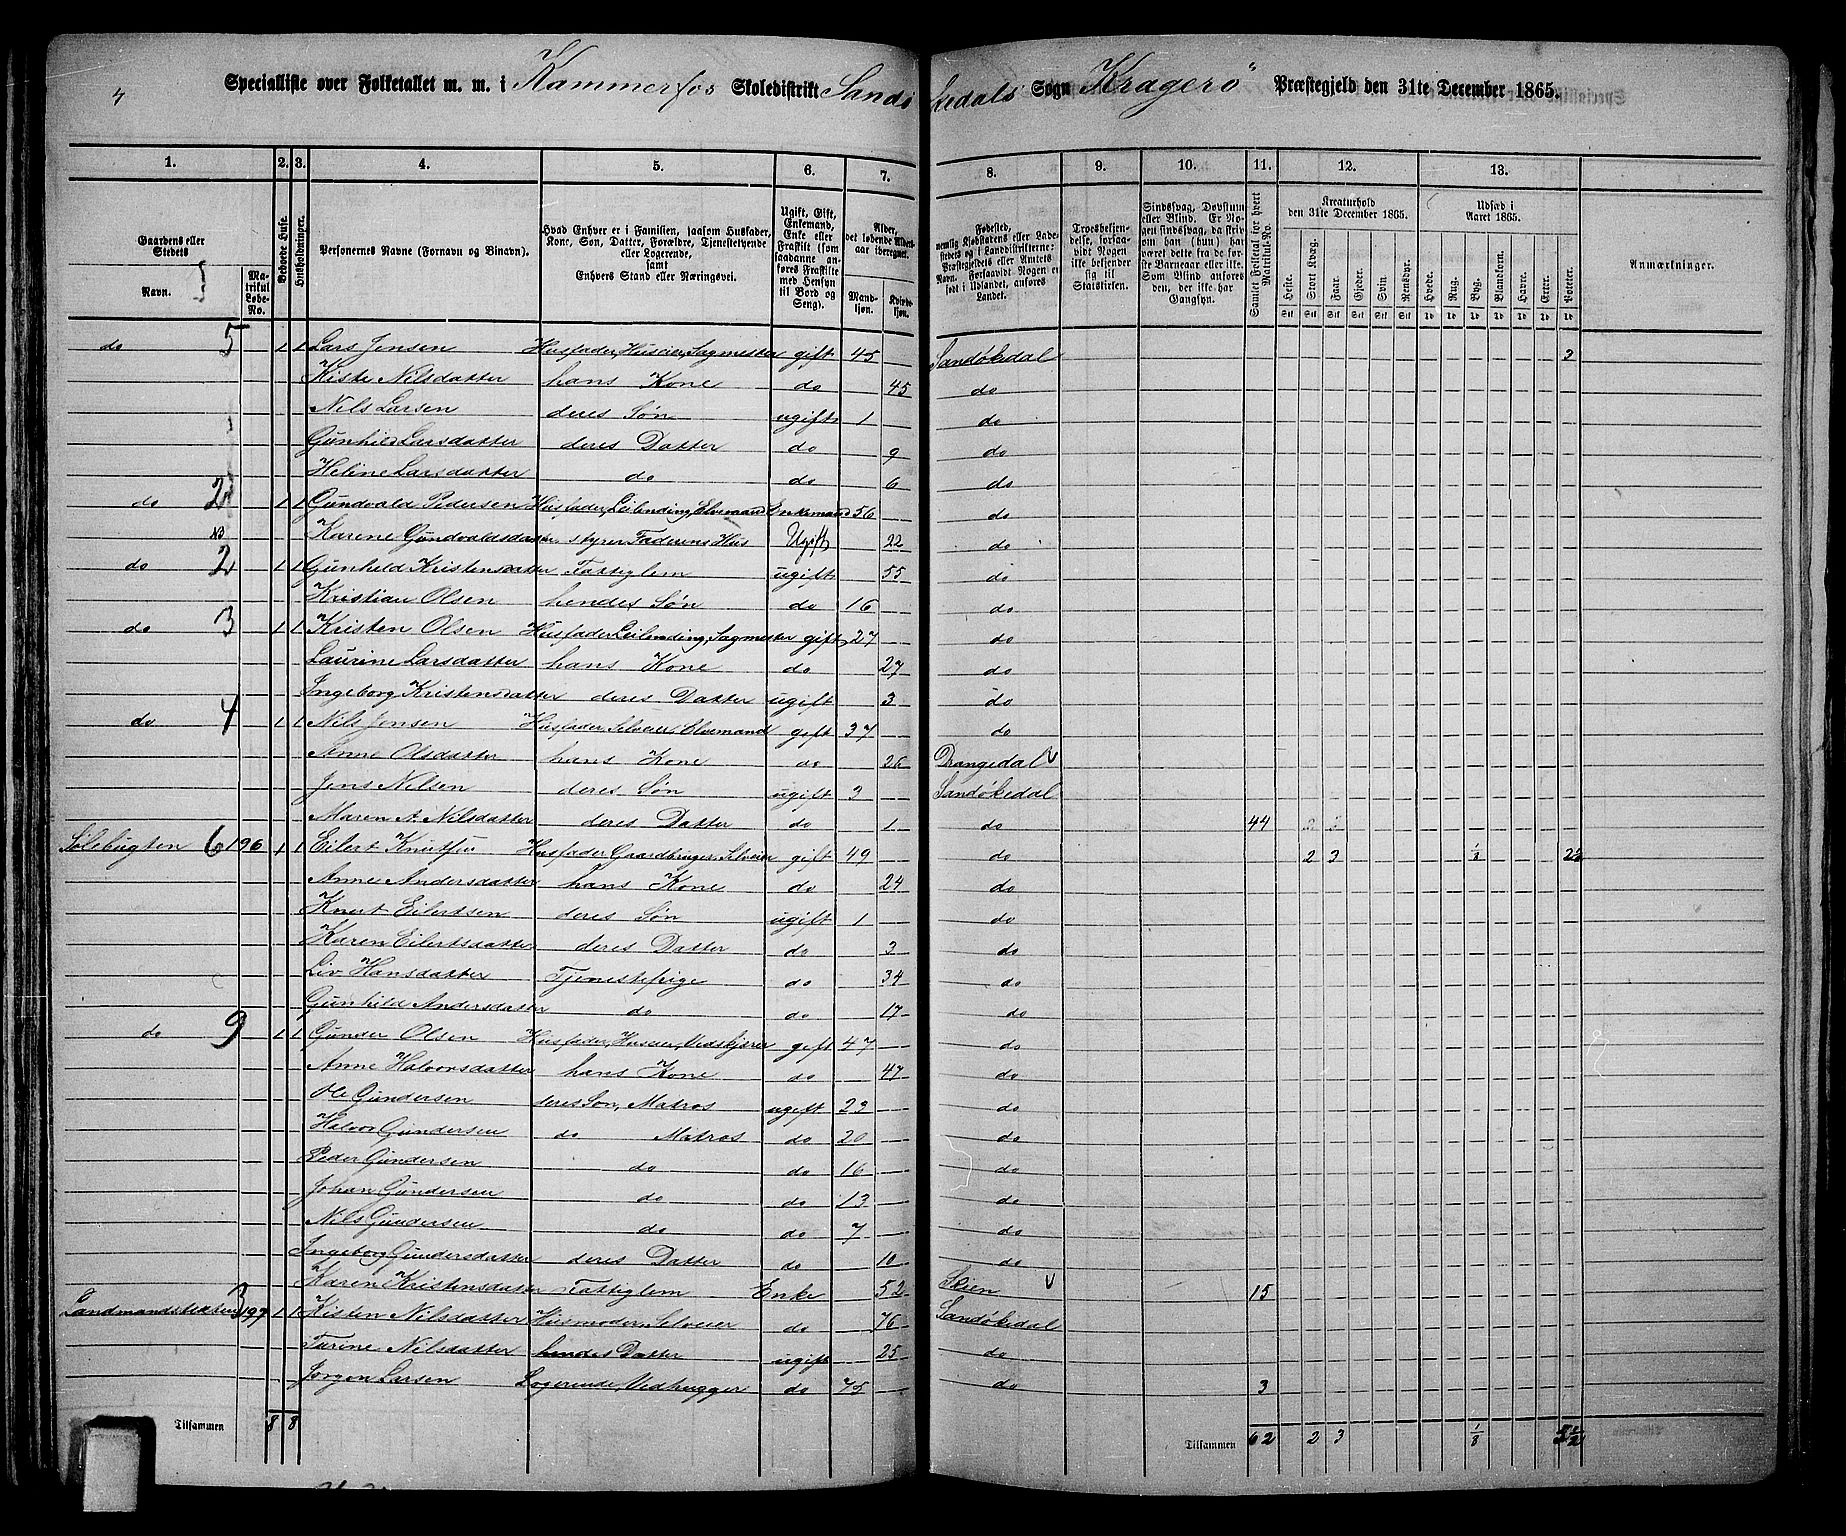 4 Specialliste over Folketallet m. m. i Kammerfos Skoledistrikt Sandökedals Sogn Kragerö Præstegjeld den 31te December 1865.
1. 2. 3. 4. 5. 6. 7. 8. 9. 10. 11. 12. 13.
Gaardens eller Stedets Navn. Matrikul Løbe-No. Beboede Huse. Husholdninger. Personernes Navne (Fornavn og Binavn). Hvad Enhver er i Familien, saasom Husfader, Kone, Søn, Datter, Forældre, Tjenestetyende eller Logerende, samt Enhvers Stand eller Næringsvei. Ugift, Gift, Enkemand, Enke eller Fraskilt (som saadanne anføres Fraskilte med Hensyn til Bord og Seng). Alder, det løbende Aldersaar iberegnet. Mandkjøn. Kvindekjøn.
Fødested, nemlig Kjøbstadens eller Ladestedets og i Landdistrikterne: Præstegjeldets eller Amtets Navn. Forsaavidt Nogen er født i Udlandet, anføres Landet. Troesbekjendelse, forsaavidt Nogen ikke bekjender sig til Statskirken. Sindssvag, Døvstum eller Blind. Er Nogen sindssvag, da skriv om han (hun) har været det fra de første Barneaar eller ikke. Som Blind anføres den, der ikke har Gangsyn. Samlet Folketal for hvert Matrikul-No. Kreaturhold den 31te December 1865. Heste. Stort Kvæg. Faar. Gjeder. Svin. Rensdyr. Udsæd i Aaret 1865. Hvede. Rug. Byg. Blandkorn. Havre. Erter. Poteter. Anmærkninger.
do 5 1 1 Lars Jensen Husfader, Huseier, Sagmester gift 45 Sandökedal 3
Kiste Nilsdatter hans Kone do 45 do
Nils Larsen deres Søn ugift 1 do
Gunhild Larsdatter deres Datter do 9 do
Heline Larsdatter do do 6 do
do 2 1 1 Gundvald Pedersen Husfader, Leilending, Elvemand Enkemand 56 do
Karine Gundvaldsdatter styrer Faderens Hus Ugift 22 do
do 2 1 1 Gunhild Kristensdatter Fattiglem ugift 55 do
Kristian Olsen hendes Søn do 16 do
do 3 1 1 Kristen Olsen Husfader, Leilending, Sagmester gift 27 do
Laurine Larsdatter hans Kone do 27 do
Ingeborg Kristensdatter deres Datter ugift 3 do
do 4 1 1 Nils Jensen Husfader, Selveier, Elvemand gift 37 do
Anne Olsdatter hans Kone do 26 Drangedal
Jens Nilsen deres Søn ugift 3 Sandökedal
Maren A. Nilsdatter deres Datter do 1 do 44
Sølebugten 6 196 1 1 Eilert Knutsen Husfader, Gaardbruger, Selveier gift 49 do 2 3 1/8 2½
Anne Andersdatter hans Kone do 24 do
Knut Eilertsen deres Søn ugift 1 do
Karen Eilertsdatter deres Datter do 3 do
Liv Hansdatter Tjenestepige do 34 do
Gunhild Andersdatter do do 17 do
do 9 1 1 Gunder Olsen Husfader, Huseier, Vedskjærer gift 47 do
Anne Halvorsdatter hans Kone do 47 do
Ole Gundersen deres Søn, Matros ugift 23 do
Halvor Gundersen do Matros do 20 do
Peder Gundersen do do 16 do
Johan Gundersen do do 13 do
Nils Gundersen do do 7 do
Ingeborg Gundersdatter deres Datter do 10 do
Karen Kristensdatter Fattiglem Enke 52 Skien 15
Landmandstekten 3 197 1 1 Kisten Nilsdatter Husmoder, Selveier do 76 Sandökedal
Turine Nilsdatter hendes Datter ugift 25 do
Jørgen Larsen Logerende, Vedhugger do 75 do 3
Tilsammen 8 8 Tilsammen 62 2 3 1/8 5½